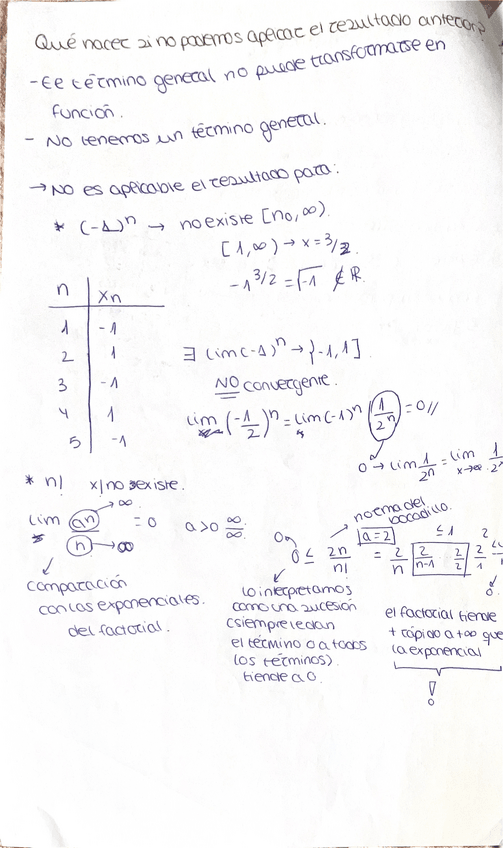 Qué hacer si no podemos aplicar el resultado anterior?
- El término general no puede transformarse en
función.
- No tenemos un término general.
→ No es aplicable el resultado para:
* (-1)ⁿ → no existe [n₀, ∞).
[1, ∞) → x = 3/2.
-1^3/2 = √-1 ∉ ℝ.
n | xn
1 | -1
2 | 1
3 | -1
4 | 1
5 | -1
∃ lim(-1)ⁿ → {-1, 1]
NO convergente.
lim (-1/2)ⁿ = lim (-1)ⁿ (1/2ⁿ) = 0//
0 → lim 1/2ⁿ = lim x→∞ 1/2ⁿ
* n! x! no existe.
lim aⁿ → ∞ / n → ∞ = 0 a>0 ∞/∞.
comparación
con las exponenciales.
del factorial.
norma del
bocadillo.
a=2
0 ≤ 2n/n! = 2/n · 2/n-1 · 2/2 · 2/1 ≤
≤ 1
0.
Lo interpretamos
como una sucesión
(siempre le dan
el término 0 a todos
los términos).
tiende a 0.
el factorial tiende
+ rápido a +∞ que
la exponencial
!